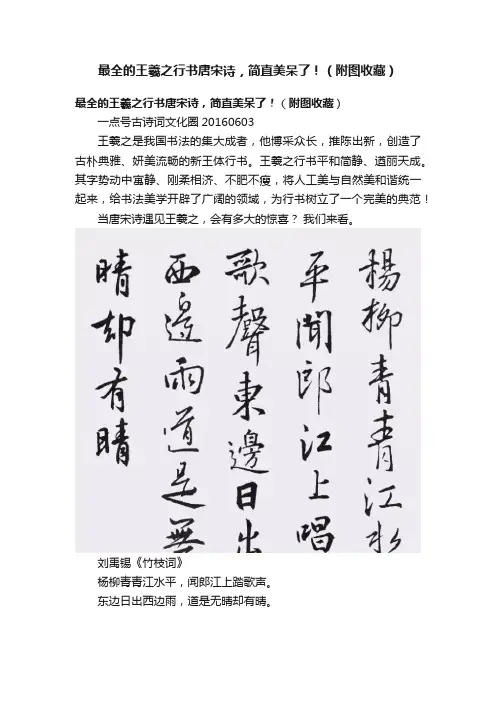 最全的王羲之行书唐宋诗，简直美呆了！（附图收藏）
最全的王羲之行书唐宋诗，简直美呆了！（附图收藏）
一点号古诗词文化圈 20160603
王羲之是我国书法的集大成者，他博采众长，推陈出新，创造了
古朴典雅、妍美流畅的新王体行书。王羲之行书平和简静、遒丽天成。
其字势动中寓静、刚柔相济、不肥不瘦，将人工美与自然美和谐统一
起来，给书法美学开辟了广阔的领域，为行书树立了一个完美的典范！
当唐宋诗遇见王羲之，会有多大的惊喜？ 我们来看。
楊柳青青江水
平聞郎江上唱
歌聲東邊日出
西邊雨道是無
晴却有晴
刘禹锡《竹枝词》
杨柳青青江水平，闻郎江上踏歌声。
东边日出西边雨，道是无晴却有晴。